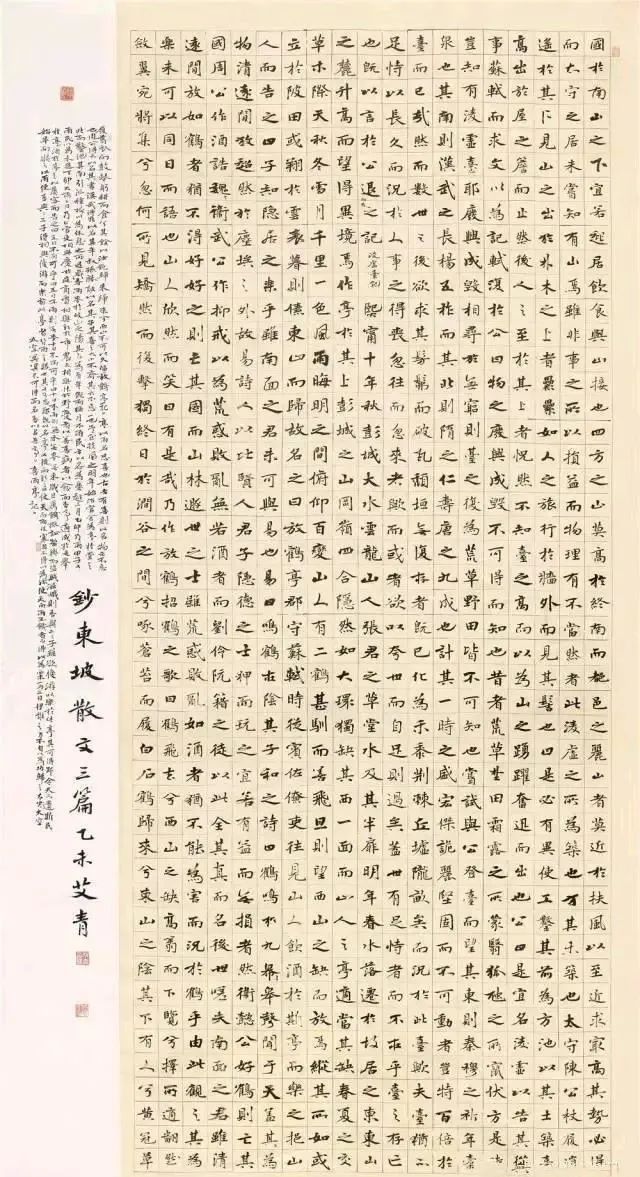 國於南山之下宜若起居飲食與山接也四方之山莫高於終南而都邑之麗山者莫近於扶風以至近求最高其勢必得
而太守之居未嘗知有山焉雖非事之所以損益而物理有不當然者此凌虛之所為築也方其未築也太守陳公杖履逍
遙於其下見山之出於林木之上者纍纍如人之旅行於牆外而見其髻也曰是必有異使工鑿其前為方池以其土築臺
高出於屋之簷而止然後人之至於其上者怳然不知臺之高而以為山之踴躍奮迅而出也公曰是宜名凌虛以告其從
事蘇軾而求文以為記軾復於公曰物之廢興成毀不可得而知也昔者荒草野田霜露之所蒙翳狐虺之所竄伏方是時
豈知有凌虛臺耶廢興成毀相尋於無窮則臺之復為荒草野田皆不可知也嘗試與公登臺而望其東則秦穆之祈年橐
泉也其南則漢武之長楊五柞而其北則隋之仁壽唐之九成也計其一時之盛宏傑詭麗堅固而不可動者豈特百倍於
臺而已哉然而數世之後欲求其髣髴而破瓦頹垣無復存者既已化為禾黍荊棘丘墟隴畝矣而況於此臺歟夫臺猶不
足恃以長久而況於人事之得喪忽往而忽來者歟而或者欲以夸世而自足則過矣蓋世有足恃者而不在乎臺之存亡
也既以言於公退之記 凌虛臺記 熙甯十年秋彭城大水雲龍山人張君之草堂水及其半扉明年春水落遷於故居之東東山
之麓升高而望得異境焉作亭於其上彭城之山岡嶺四合隱然如大環獨缺其西一面而山人之亭適當其缺春夏之交
草木際天秋冬雪月千里一色風雨晦明之間俯仰百變山人有二鶴甚馴而善飛旦則望西山之缺而放焉縱其所如或
立於陂田或翔於雲表暮則傃東山而歸故名之曰放鶴亭郡守蘇軾時從賓佐僚吏往見山人飲酒於斯亭而樂之挹山
人而告之曰子知隱居之樂乎雖南面之君未可與易也易曰鳴鶴在陰其子和之詩曰鶴鳴於九皋聲聞于天蓋其為
物清遠閒放超然於塵埃之外故易詩人以比賢人君子隱德之士狎而玩之宜若有益而無損者然衛懿公好鶴則亡其
國周公作酒誥衛武公作抑戒以為荒惑敗亂無若酒者而劉伶阮籍之徒以此全其真而名後世嗟夫南面之君雖清
遠閒放如鶴者猶不得好好之則亡其國而山林遯世之士雖荒惑敗亂如酒者猶不能為害而況於鶴乎由此觀之其為
樂未可以同日而語也山人欣然而笑曰有是哉乃作放鶴招鶴之歌曰鶴飛去兮西山之缺高翥而下覽兮擇所適翻然
斂翼宛將集兮忽何所見矯然而復擊獨終日於澗谷之間兮啄蒼苔而履白石鶴歸來兮東山之陰其下有人兮黃冠草
履葛衣而鼓琴躬耕而食兮其餘以汝飽歸來歸來兮西山不可以久留放鶴亭記 亭以雨名志喜也古者有喜則以名物示不忘
也周公得禾以名其書漢武得鼎以名其年叔孫勝敵以名其子其喜之大小不齊其示不忘一也
喜雨亭記
鈔東坡散文三篇 乙未艾青